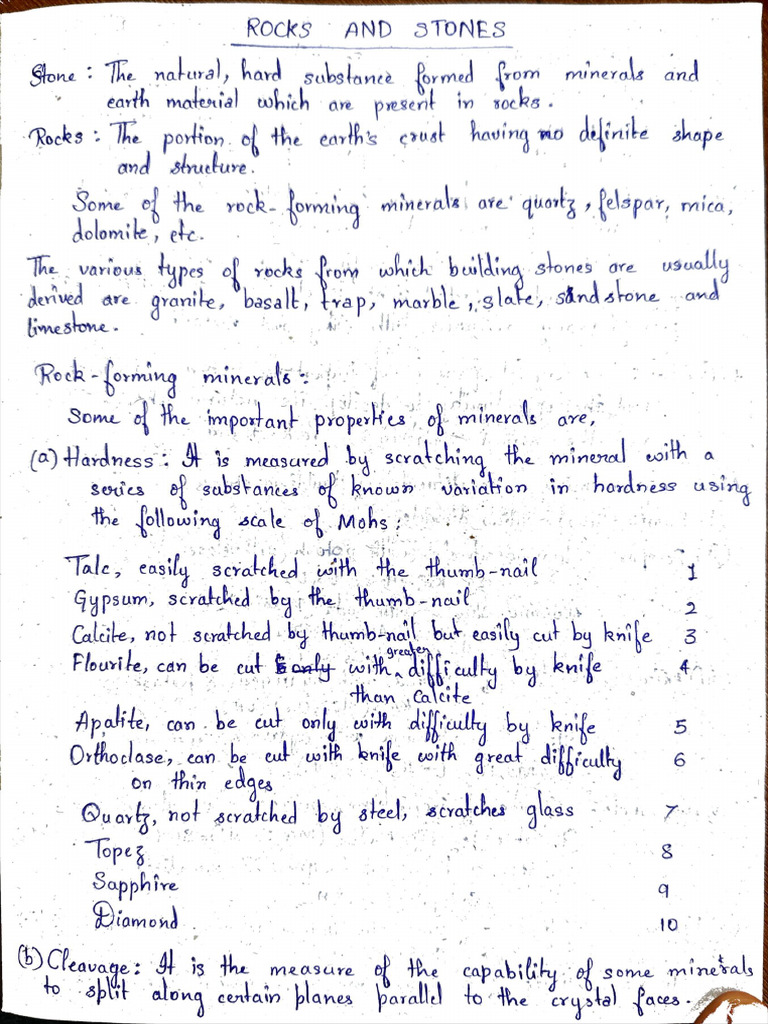 ROCKS AND STONES
Stone : The natural, hard substance formed from minerals and
earth material which are present in rocks.
Rocks : The portion of the earth's crust having no definite shape
and structure.
Some of the rock-forming minerals are quartz, felspar, mica,
dolomite, etc.
The various types of rocks from which building stones are usually
derived are granite, basalt, trap, marble, slate, sandstone and
limestone.
Rock-forming minerals :
Some of the important properties of minerals are,
(a) Hardness : It is measured by scratching the mineral with a
series of substances of known variation in hardness using
the following scale of Mohs :
Talc, easily scratched with the thumb-nail 1
Gypsum, scratched by the thumb-nail 2
Calcite, not scratched by thumb-nail but easily cut by knife 3
Flourite, can be cut only with greater difficulty by knife 4
than Calcite
Apalite, can be cut only with difficulty by knife 5
Orthoclase, can be cut with knife with great difficulty 6
on thin edges
Quartz, not scratched by steel, scratches glass 7
Topez 8
Sapphire 9
Diamond 10
(b) Cleavage : It is the measure of the capability of some minerals
to split along certain planes parallel to the crystal faces.